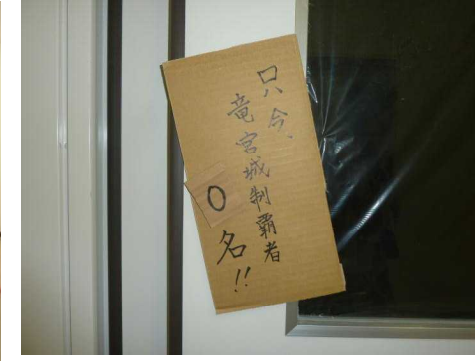 只今、
竜宮城制覇者
0名!!